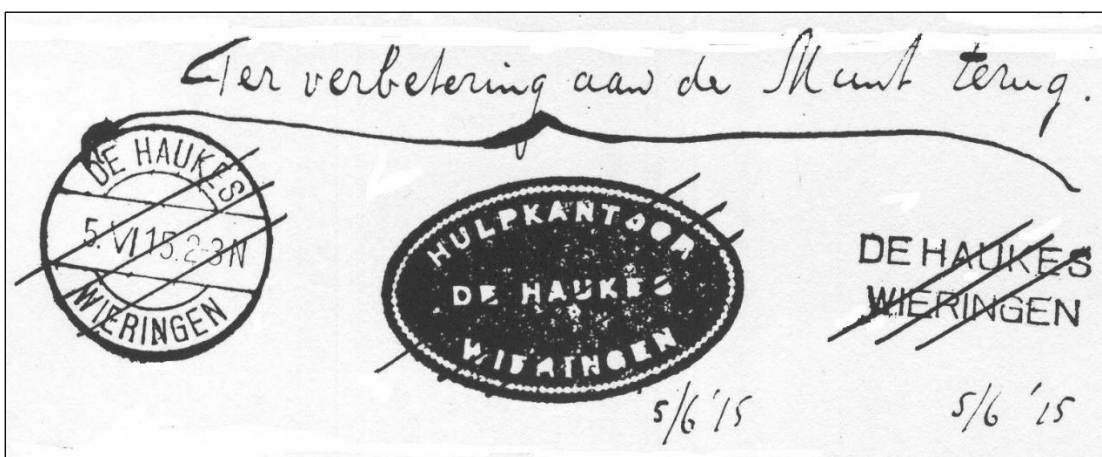 Ter verbetering aan de Munt terug.
DE HAUKES
5.VI.15.2-3N
WIERINGEN
HULPKANTOOR
DE HAUKES
WIERINGEN
5/6 '15
DE HAUKES
WIERINGEN
5/6 '15